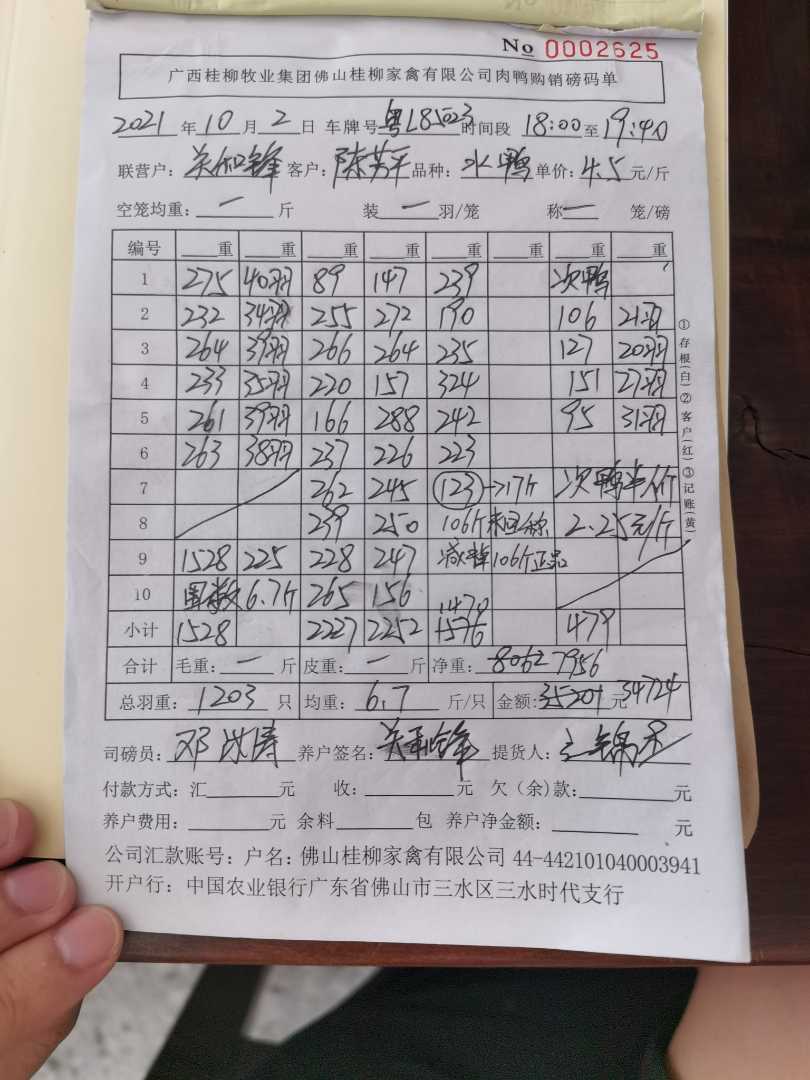 No 0002625
广西桂柳牧业集团佛山桂柳家禽有限公司肉鸭购销磅码单
2021年10月2日 车牌号粤L85023时间段 18:00至19:40
联营户: 关 锋 客户: 陈 平 品种: 水鸭 单价: 4.5 元/斤
空笼均重: 一 斤 装 一 羽/笼 称 一 笼/磅
编号 重 重 重 重 重 重 重 重
1 275 40羽 89 147 239 次鸭
2 232 34羽 255 272 190 106 21羽
3 264 39羽 266 264 235 127 20羽
4 233 35羽 220 157 324 151 27羽
5 261 39羽 166 288 242 95 31羽
6 263 38羽 237 226 223
7 262 245 123→17斤 次鸭半价
8 239 250 106斤 2.25元/斤
9 1528 225 228 247 减掉106斤正品
10 6.7斤 265 156
1470
小计 1528 2227 2252 1576 479
合计 毛重: 一 斤 皮重: 一 斤 净重: 8062 7956
总羽重: 1203 只 均重: 6.7 斤/只 金额: 35201 元 34724
司磅员: 邓 涛 养户签名: 关 锋 提货人:
付款方式: 汇 元 收: 元 欠(余)款: 元
养户费用: 元 余料 包 养户净金额: 元
公司汇款账号: 户名: 佛山桂柳家禽有限公司 44-442101040003941
开户行: 中国农业银行广东省佛山市三水区三水时代支行
①存根(白)②客户(红)③记账(黄)